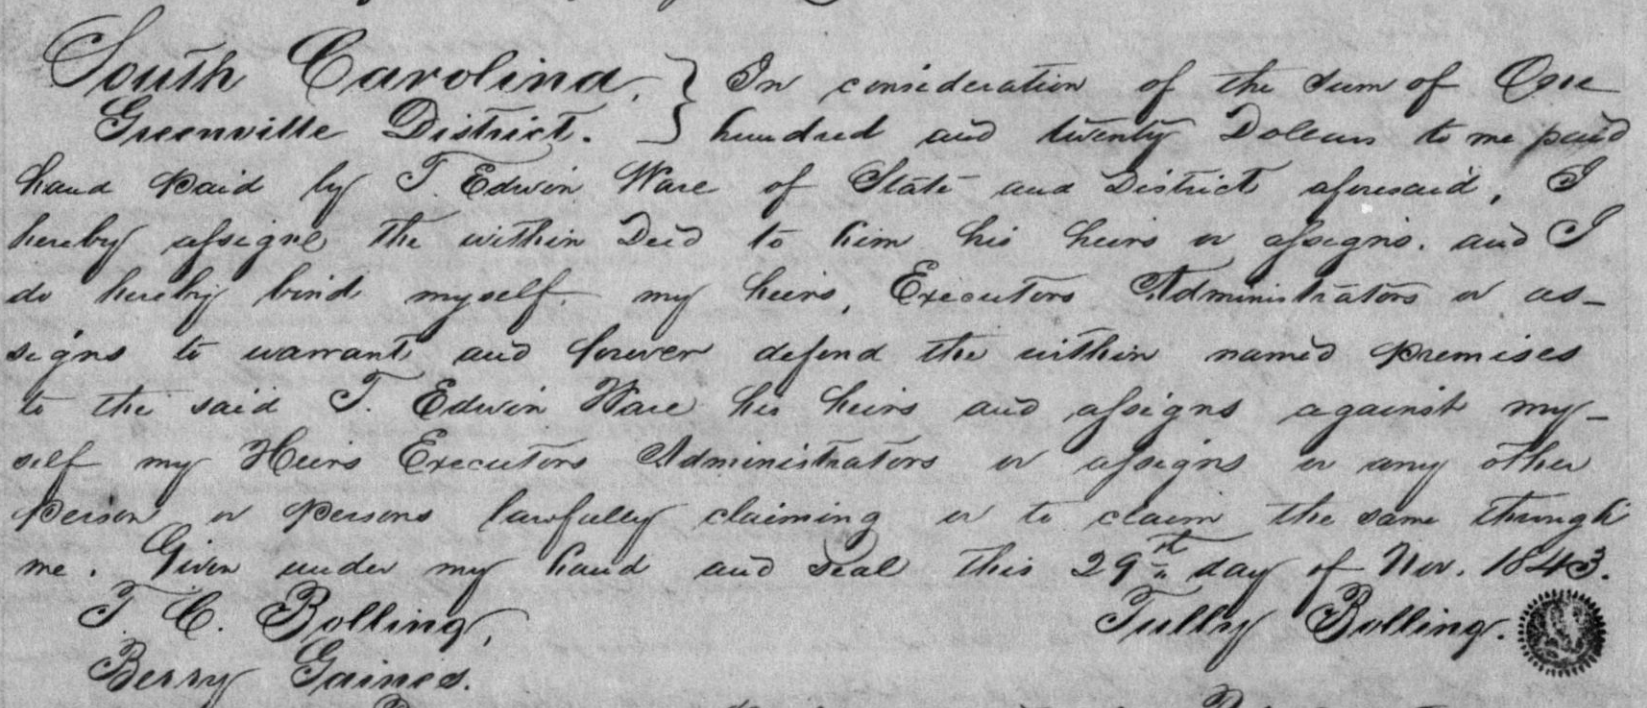 South Carolina, } In consideration of the sum of One
Greenville District. } hundred and twenty Dollars to me paid
hand paid by T. Edwin Ware of State and District aforesaid, I
hereby assigne the within Deed to him his heirs or assigns. and I
do hereby bind myself, my heirs, Executors Administrators or as-
signs to warrant and forever defend the within named premises
to the said T. Edwin Ware his heirs and assigns against my-
self my Heirs Executors Administrators or assigns or any other
person or persons lawfully claiming or to claim the same through
me. Given under my hand and seal this 29th day of Nov. 1843.
T. C. Bolling, Tully Bolling.
Berry Gaines.